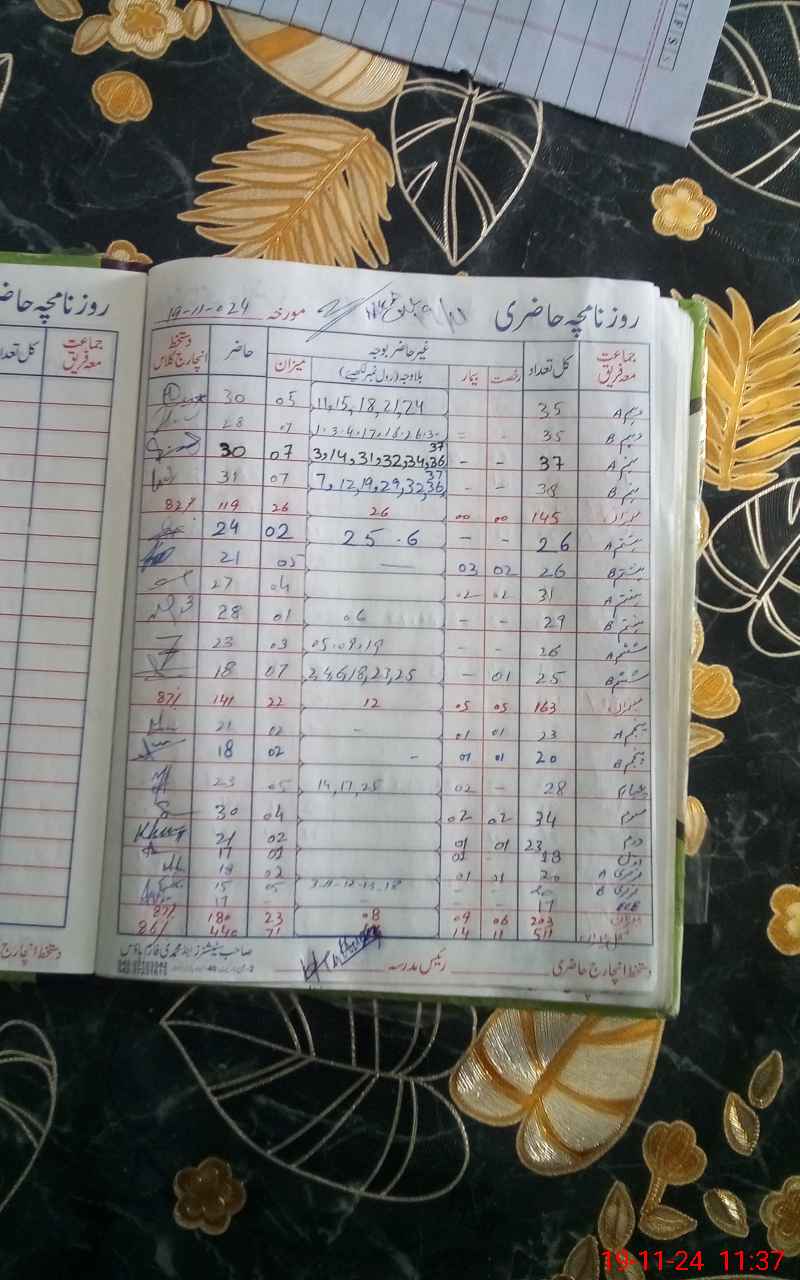 روزنامچہ حاضری
مورخہ 19-11-024
جماعت معہ فریق | کل تعداد | غیر حاضر بوجہ | حاضر | دستخط انچارج کلاس
رخصت | بیمار | بلاوجہ (رول نمبر لکھیے) | میزان
دہم A | 35 | 11, 15, 18, 21, 24 | 05 | 30
دہم B | 35 | - | = | 07 | 28
نہم A | 37 | - | - | 3, 14, 31, 32, 34, 36, 37 | 07 | 30
نہم B | 38 | - | - | 7, 12, 19, 29, 32, 36, 37 | 07 | 31
میزان | 145 | 00 | 00 | 26 | 26 | 119 | 82%
ہشتم A | 26 | - | - | 25 . 6 | 02 | 24
ہشتم B | 26 | 02 | 03 | — | 05 | 21
ہفتم A | 31 | 02 | 02 | 04 | 27
ہفتم B | 29 | - | - | 06 | 01 | 28
ششم A | 26 | - | - | 05 . 09 , 19 | 03 | 23
ششم B | 25 | 01 | - | 2, 4, 6, 18, 23, 25 | 07 | 18
میزان | 163 | 05 | 05 | 12 | 22 | 141 | 87%
پنجم A | 23 | 01 | 01 | - | 02 | 21
پنجم B | 20 | 01 | 01 | - | 02 | 18
چہارم | 28 | - | 02 | 14, 17, 25 | 05 | 23
سوم | 34 | 02 | 02 | 04 | 30
دوم | 23 | 01 | 01 | 02 | 21
اول | 18 | - | 01 | 01 | 17
نرسری A | 20 | 01 | 01 | 02 | 18
نرسری B | 20 | - | - | 3-11-12-13-18 | 05 | 15
17 | - | - | - | - | 17
میزان | 203 | 06 | 09 | 08 | 23 | 180 | 87%
کل میزان | 511 | 11 | 14 | 71 | 440 | 86%
دستخط انچارج حاضری
رئیس مدرسہ
روزنامچہ حاضری
جماعت معہ فریق
کل تعداد
19-11-24 11:37